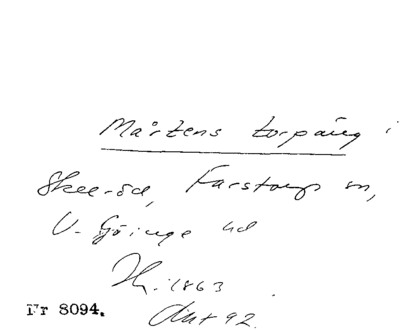 Mårtens torpäng i
Skeröd, Farstorp sn,
V. Göinge hd
H. 1863
Nr 8094.